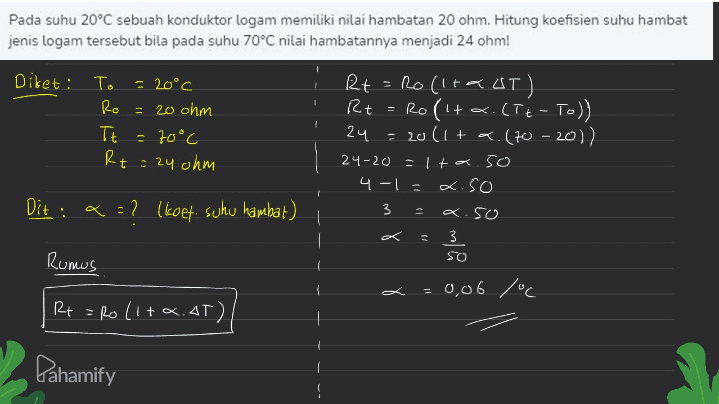 Pada suhu 20°C sebuah konduktor logam memiliki nilai hambatan 20 ohm. Hitung koefisien suhu hambat
jenis logam tersebut bila pada suhu 70°C nilai hambatannya menjadi 24 ohm!
Diket : To = 20°C
Ro = 20 ohm
Tt = 70°C
Rt = 24 ohm
Dit : α = ? (koef. suhu hambat)
Rumus
Rt = Ro (1 + α . ΔT)
Rt = Ro (1 + α . ΔT)
Rt = Ro (1 + α . (Tt - To))
24 = 20 (1 + α . (70 - 20))
24-20 = 1 + α . 50
4 - 1 = α . 50
3 = α . 50
α = 3
50
α = 0,06 /°C
Pahamify